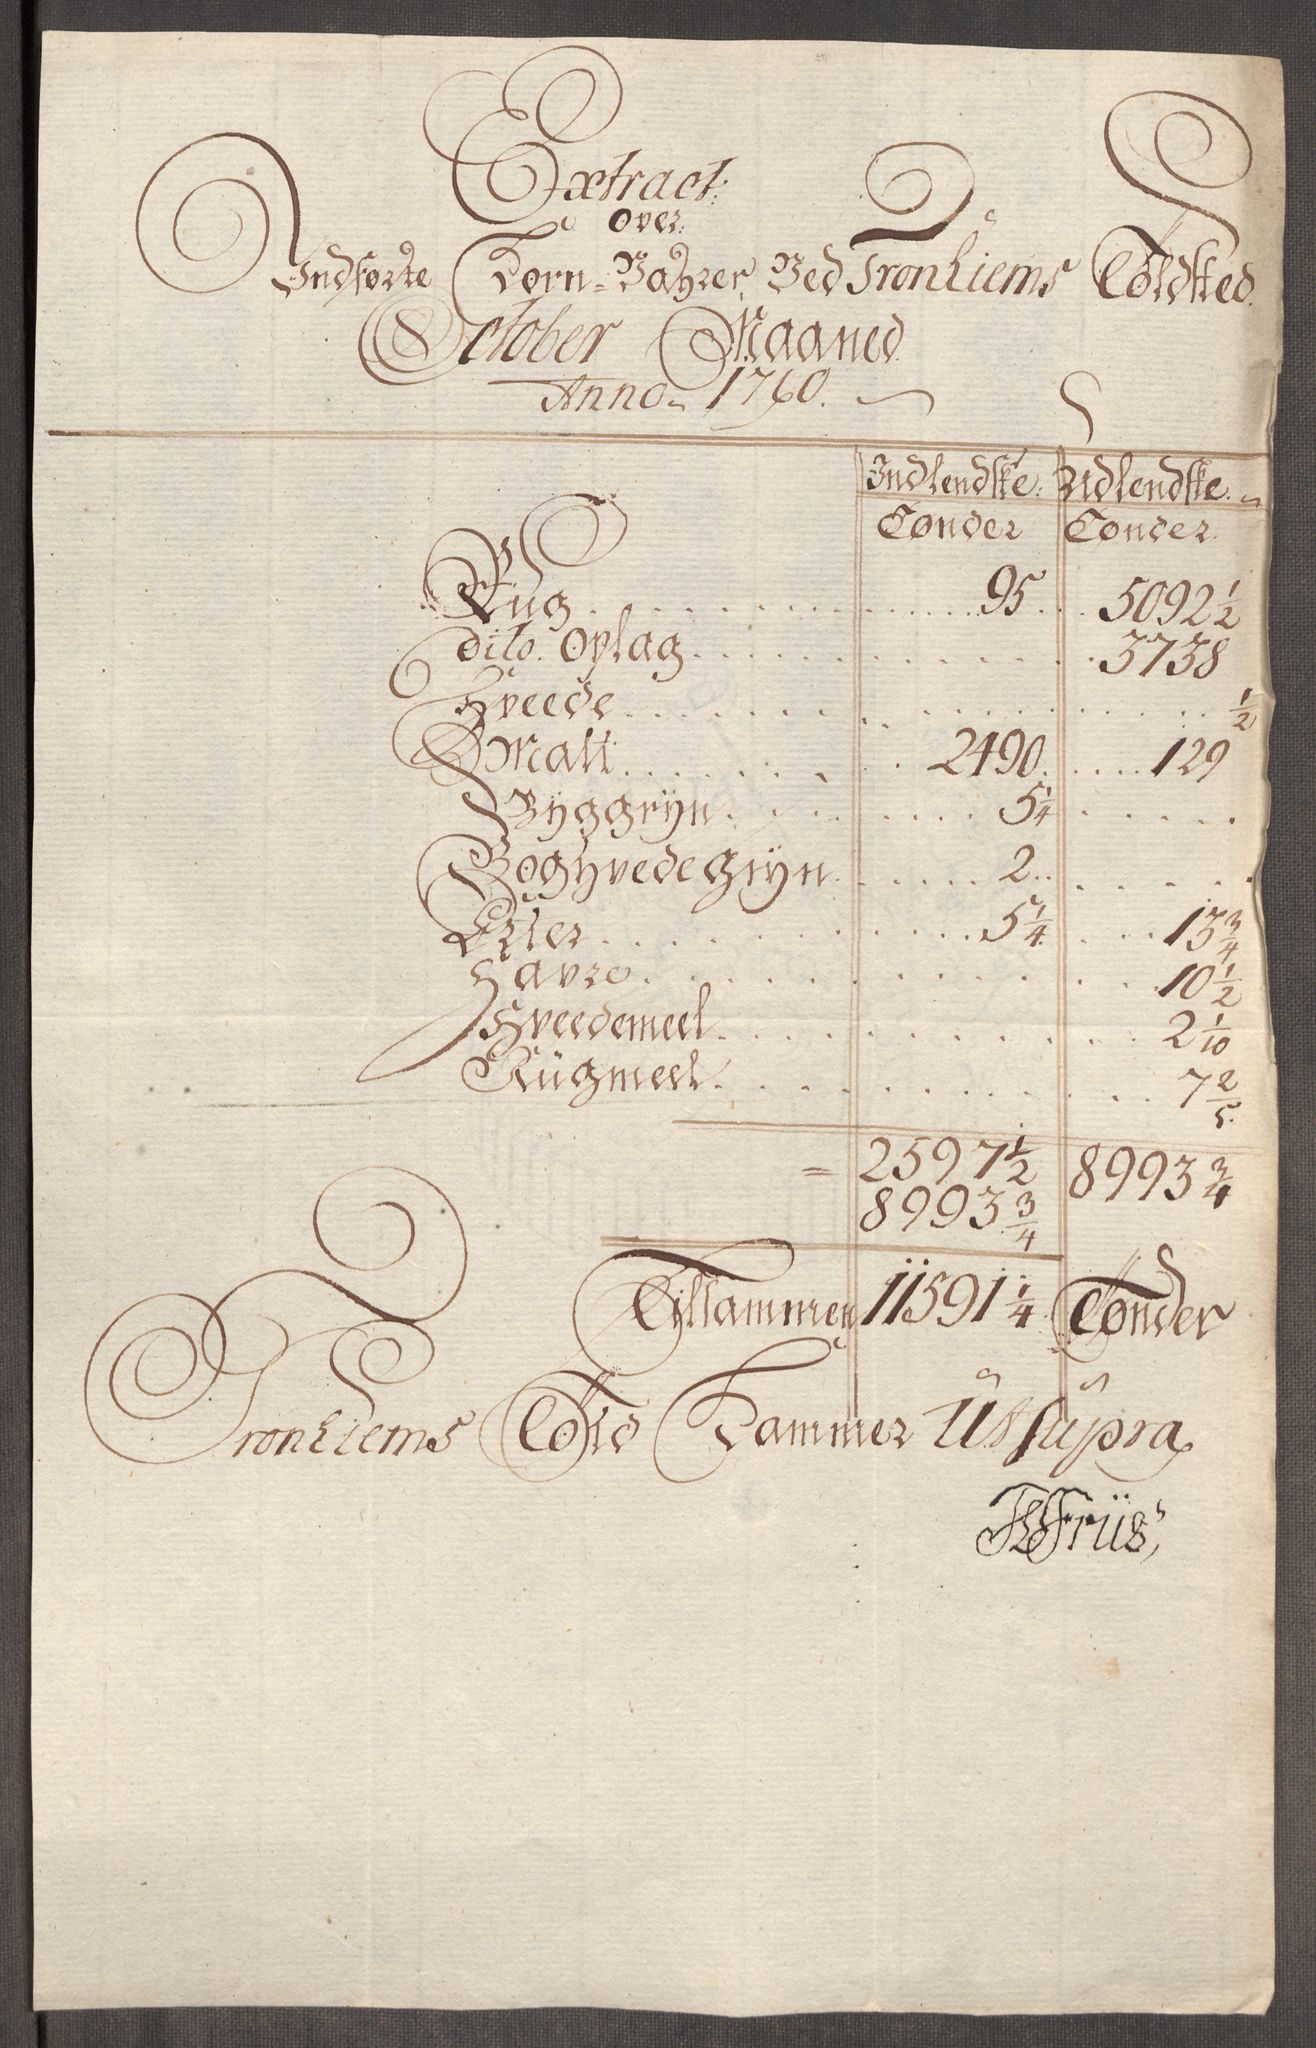 Extract:
Over:
Indførte Korn-Vahrer Ved Tronhiems Tøldsted
October Maaned
Anno 1760.
Indlendske: Udlendske.
Tønder Tønder
Rug 95 5092 1/2
dito Oplag 3738
Hveede 1/2
Malt 2490 129
Byggryn 5 1/4
Boghvedegryn 2
Erter 5 1/4 13 3/4
Havre 10 1/2
Hveedemeel 2 1/10
Rügmeel 7 2/5
= 2597 1/2 8993 3/4
8993 3/4
Tilsammen 11591 1/4 Tønder
Tronhiems Tøld Kammer Ut süpra
Friis